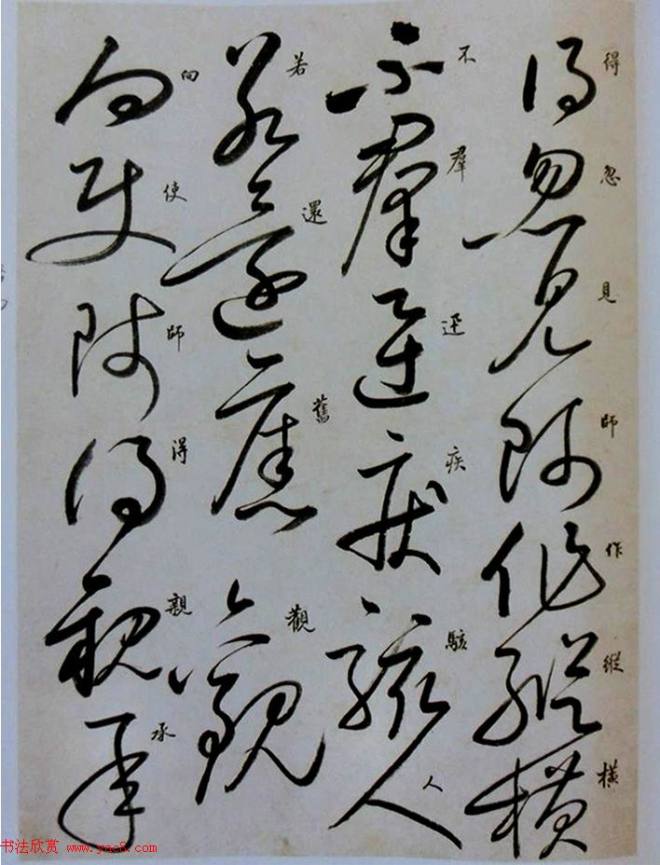 得忽見師作縱橫
不羣迅疾駭人
若還舊觀
向使師得親承
书法欣赏 www.yac8.com